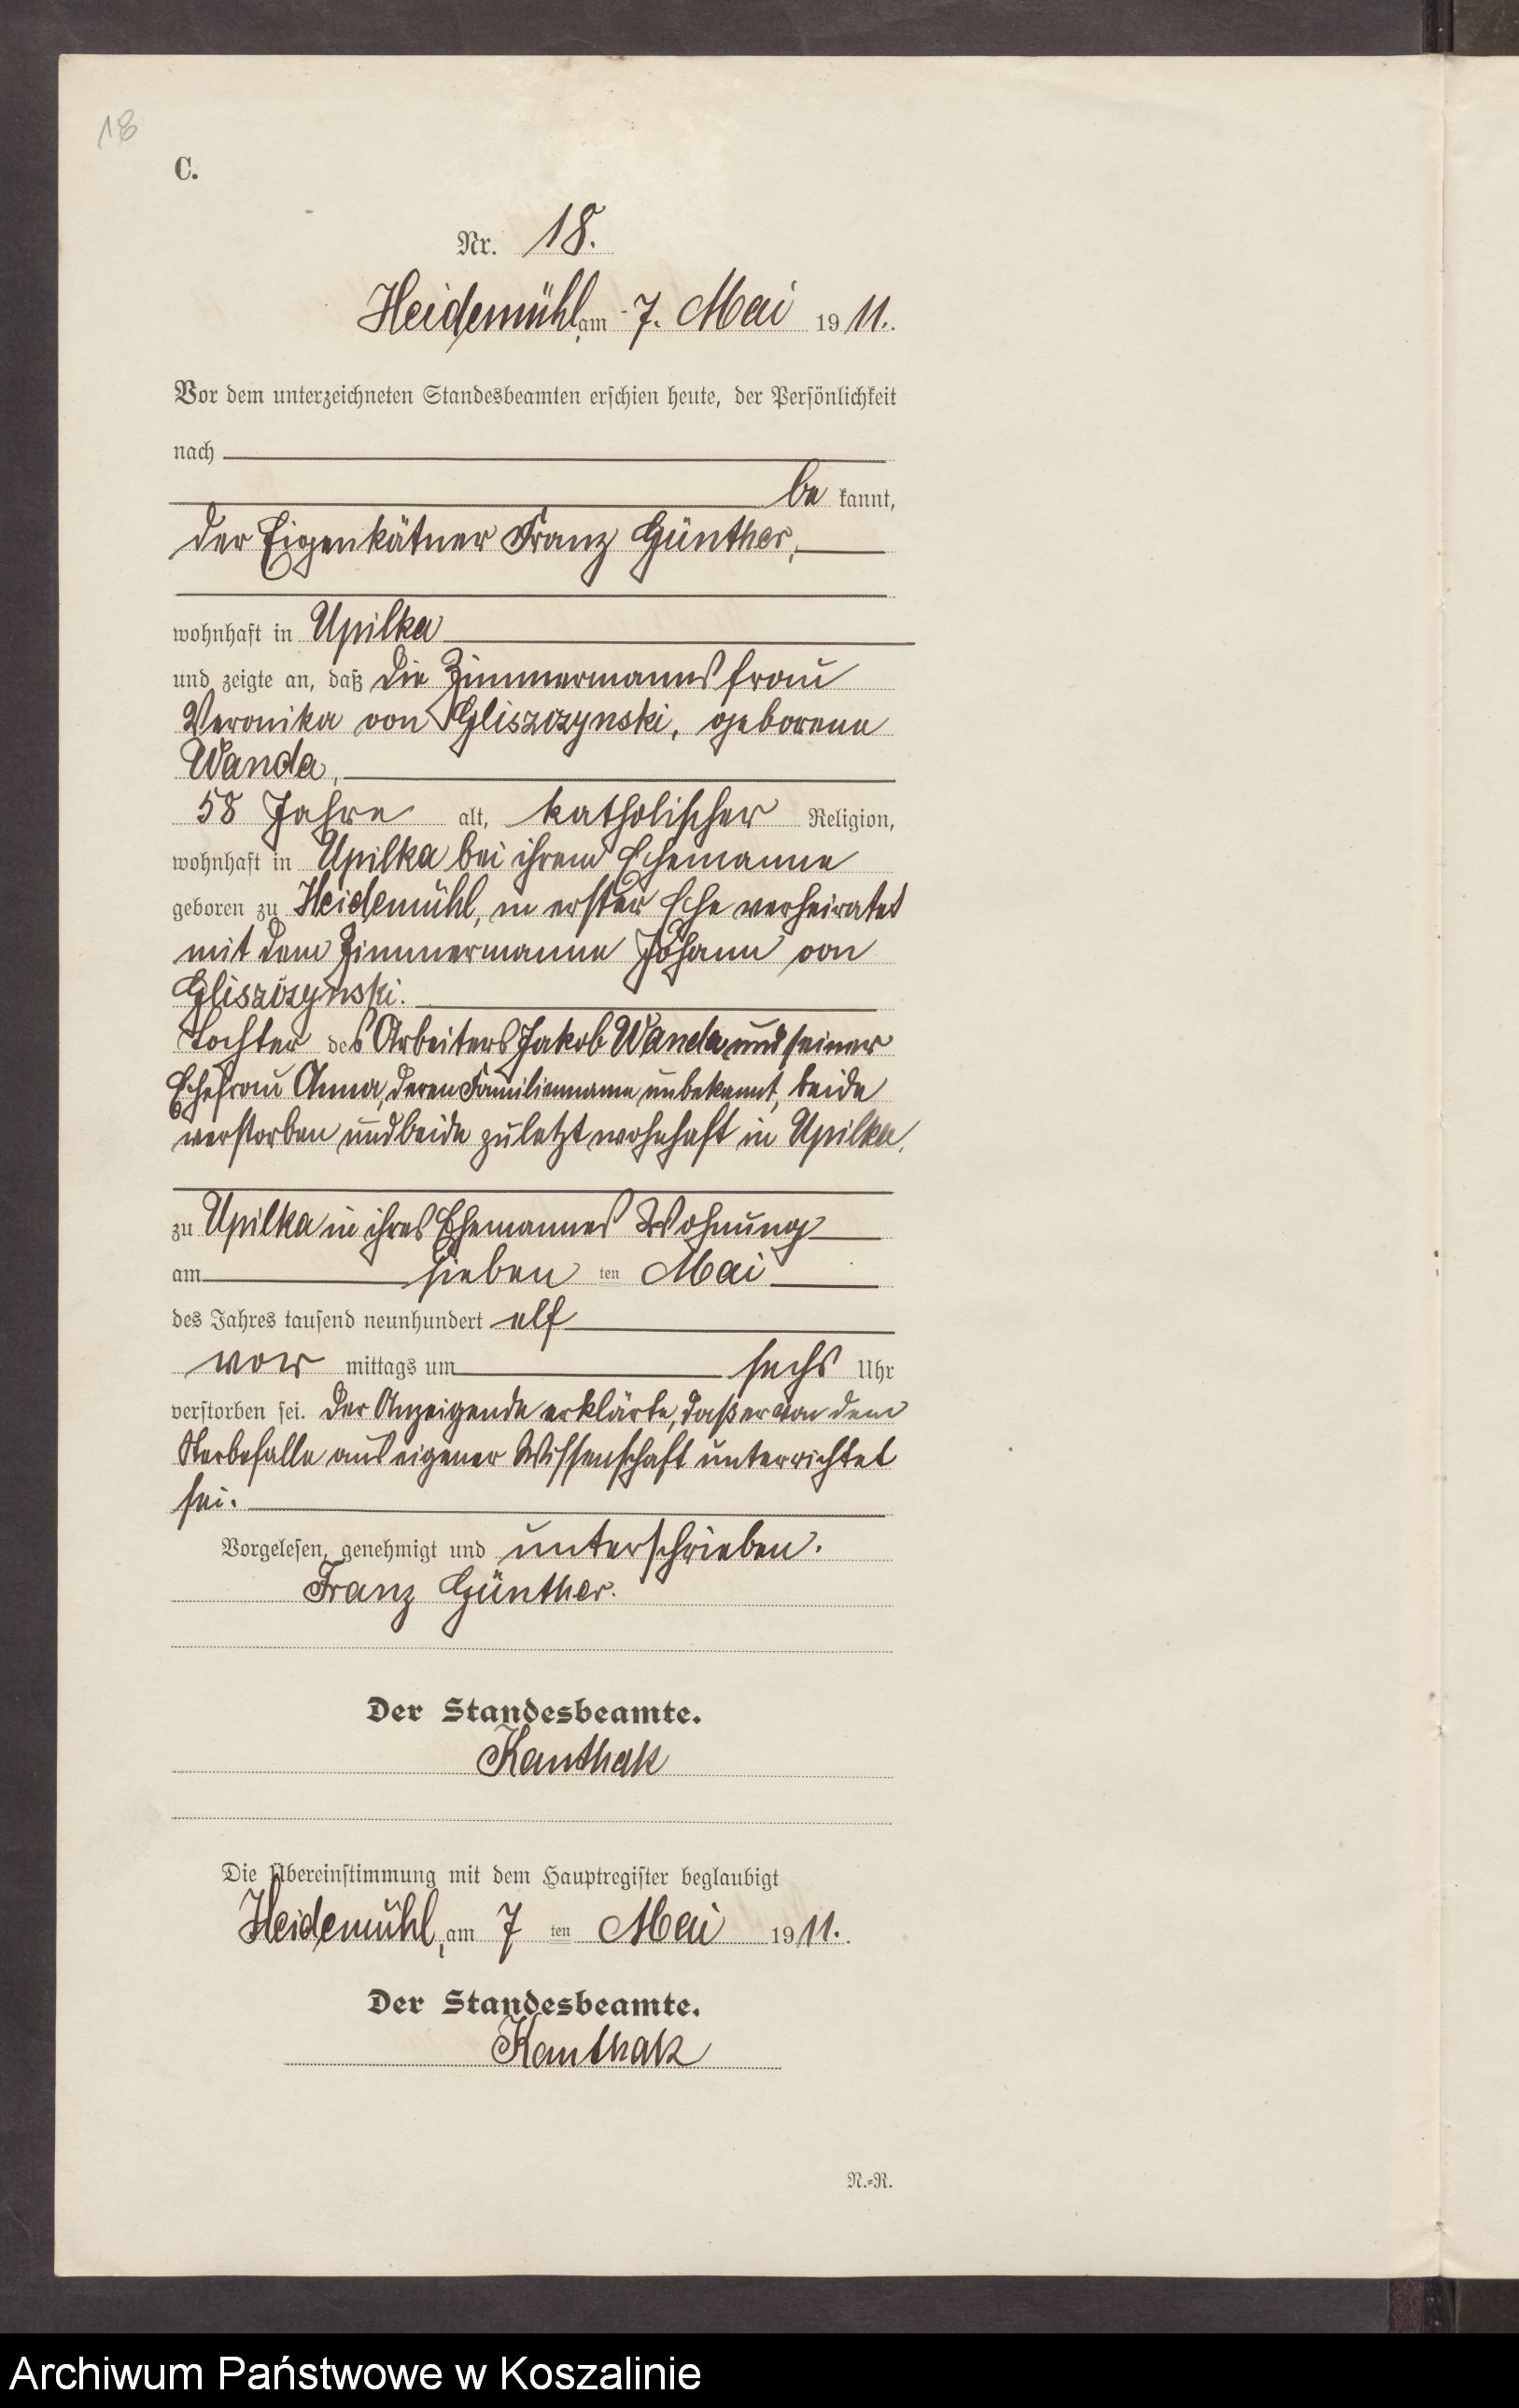 18
C.
Nr. 18.
Heidemühl, am 7. Mai 1911.
Vor dem unterzeichneten Standesbeamten erschien heute, der Persönlichkeit
nach
be kannt,
der Eigenkätner Franz Günther,
wohnhaft in Upilka
und zeigte an, daß die Zimmermannsfrau
Veronika von Gliszczynski, geborene
Wanda,
58 Jahre alt, katholischer Religion,
wohnhaft in Upilka bei ihrem Ehemanne
geboren zu Heidemühl, in erster Ehe verheiratet
mit dem Zimmermanne Johann von
Gliszczynski.
Tochter des Arbeiters Jakob Wanda und seiner
Ehefrau Anna, deren Familienname unbekannt, beide
verstorben und beide zuletzt wohnhaft in Upilka,
zu Upilka in ihres Ehemannes Wohnung
am sieben ten Mai
des Jahres tausend neunhundert elf
vor mittags um sechs Uhr
verstorben sei. Der Anzeigende erklärte, daß er von dem
Sterbefalle aus eigener Wissenschaft unterrichtet
sei.
Vorgelesen, genehmigt und unterschrieben.
Franz Günther.
Der Standesbeamte.
Kanthak
Die Übereinstimmung mit dem Hauptregister beglaubigt
Heidemühl, am 7 ten Mai 1911.
Der Standesbeamte.
Kanthak
N.-R.
Archiwum Państwowe w Koszalinie